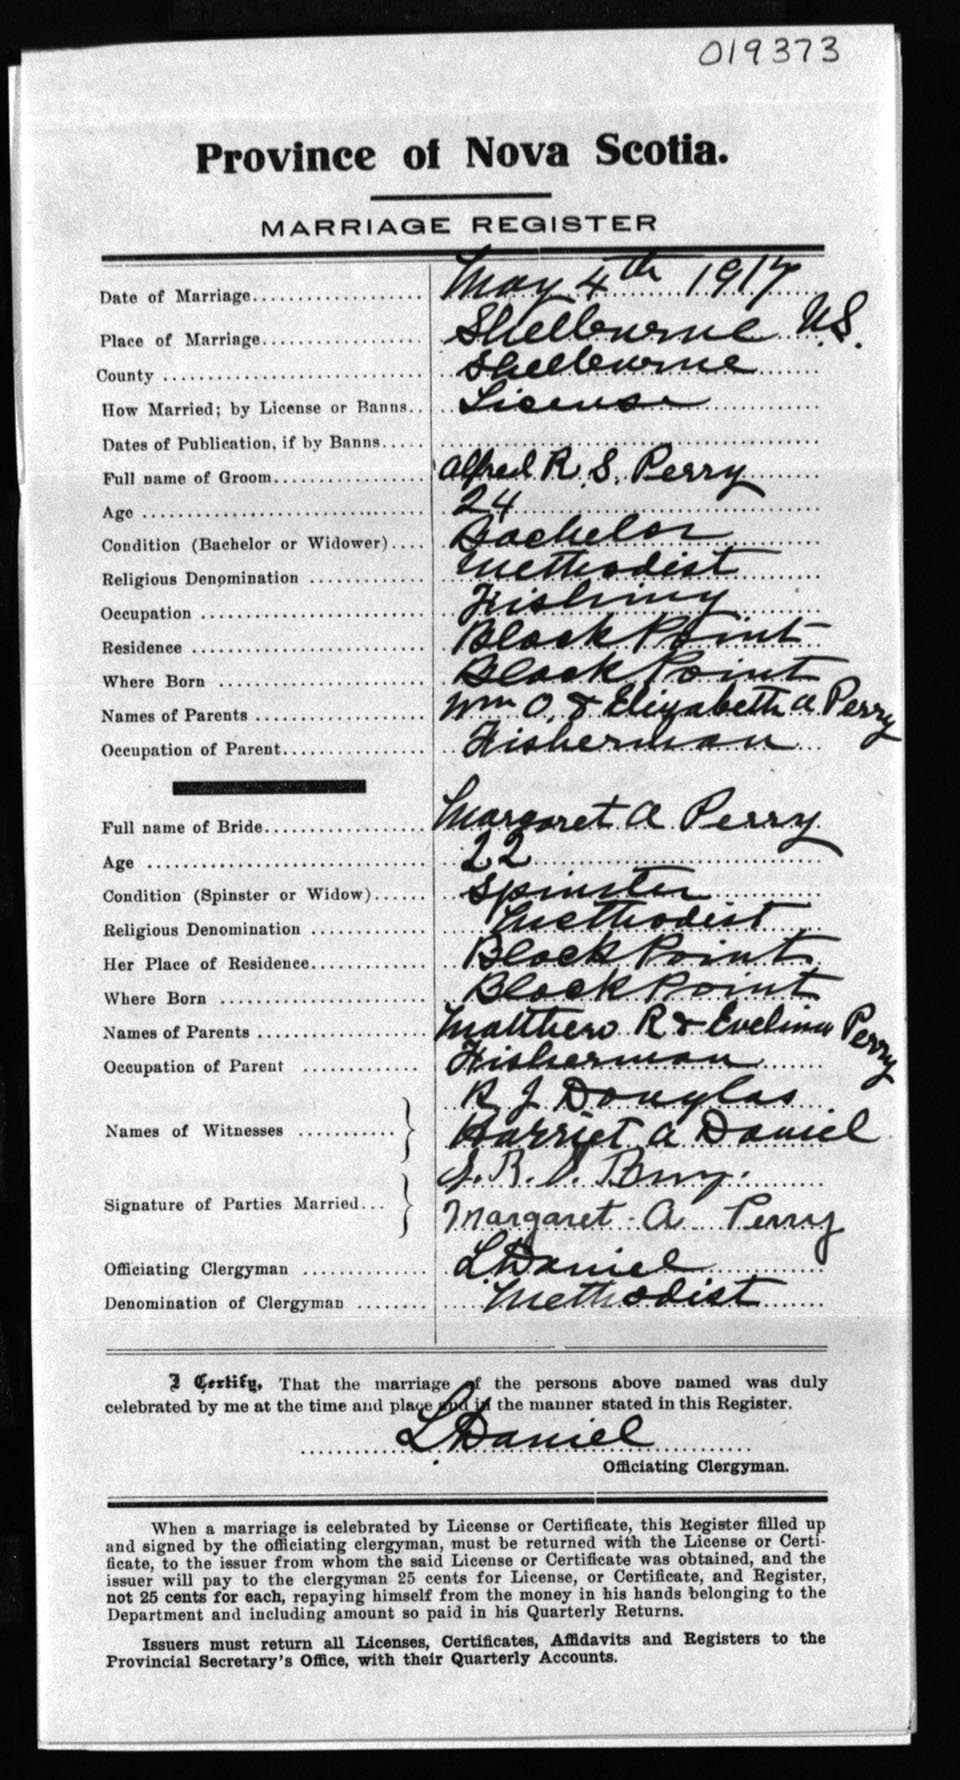 019373
Province of Nova Scotia.
MARRIAGE REGISTER
Date of Marriage.................... May 4th 1917
Place of Marriage................... Shelbourne N.S.
County ............................. Shelbourne
How Married; by License or Banns.. License
Dates of Publication, if by Banns.....
Full name of Groom.................. Alfred R. S. Perry
Age ................................ 24
Condition (Bachelor or Widower).... Bachelor
Religious Denomination ............. Methodist
Occupation ......................... Fishing
Residence .......................... Black Point
Where Born ......................... Black Point
Names of Parents ................... Wm O. & Elizabeth A Perry
Occupation of Parent................ Fisherman
Full name of Bride.................. Margaret A Perry
Age ................................ 22
Condition (Spinster or Widow)...... Spinster
Religious Denomination ............. Methodist
Her Place of Residence............. Black Point
Where Born ......................... Black Point
Names of Parents ................... Matthew R & Evelina Perry
Occupation of Parent ............... Fisherman
R J Douglas
Names of Witnesses ........... Harriet A Daniel
R. S. Perry.
Signature of Parties Married... Margaret A Perry
Officiating Clergyman .............. L Daniel
Denomination of Clergyman ........ Methodist
I Certify, That the marriage of the persons above named was duly
celebrated by me at the time and place and in the manner stated in this Register.
L Daniel
Officiating Clergyman.
When a marriage is celebrated by License or Certificate, this Register filled up
and signed by the officiating clergyman, must be returned with the License or Certi-
ficate, to the issuer from whom the said License or Certificate was obtained, and the
issuer will pay to the clergyman 25 cents for License, or Certificate, and Register,
not 25 cents for each, repaying himself from the money in his hands belonging to the
Department and including amount so paid in his Quarterly Returns.
Issuers must return all Licenses, Certificates, Affidavits and Registers to the
Provincial Secretary's Office, with their Quarterly Accounts.